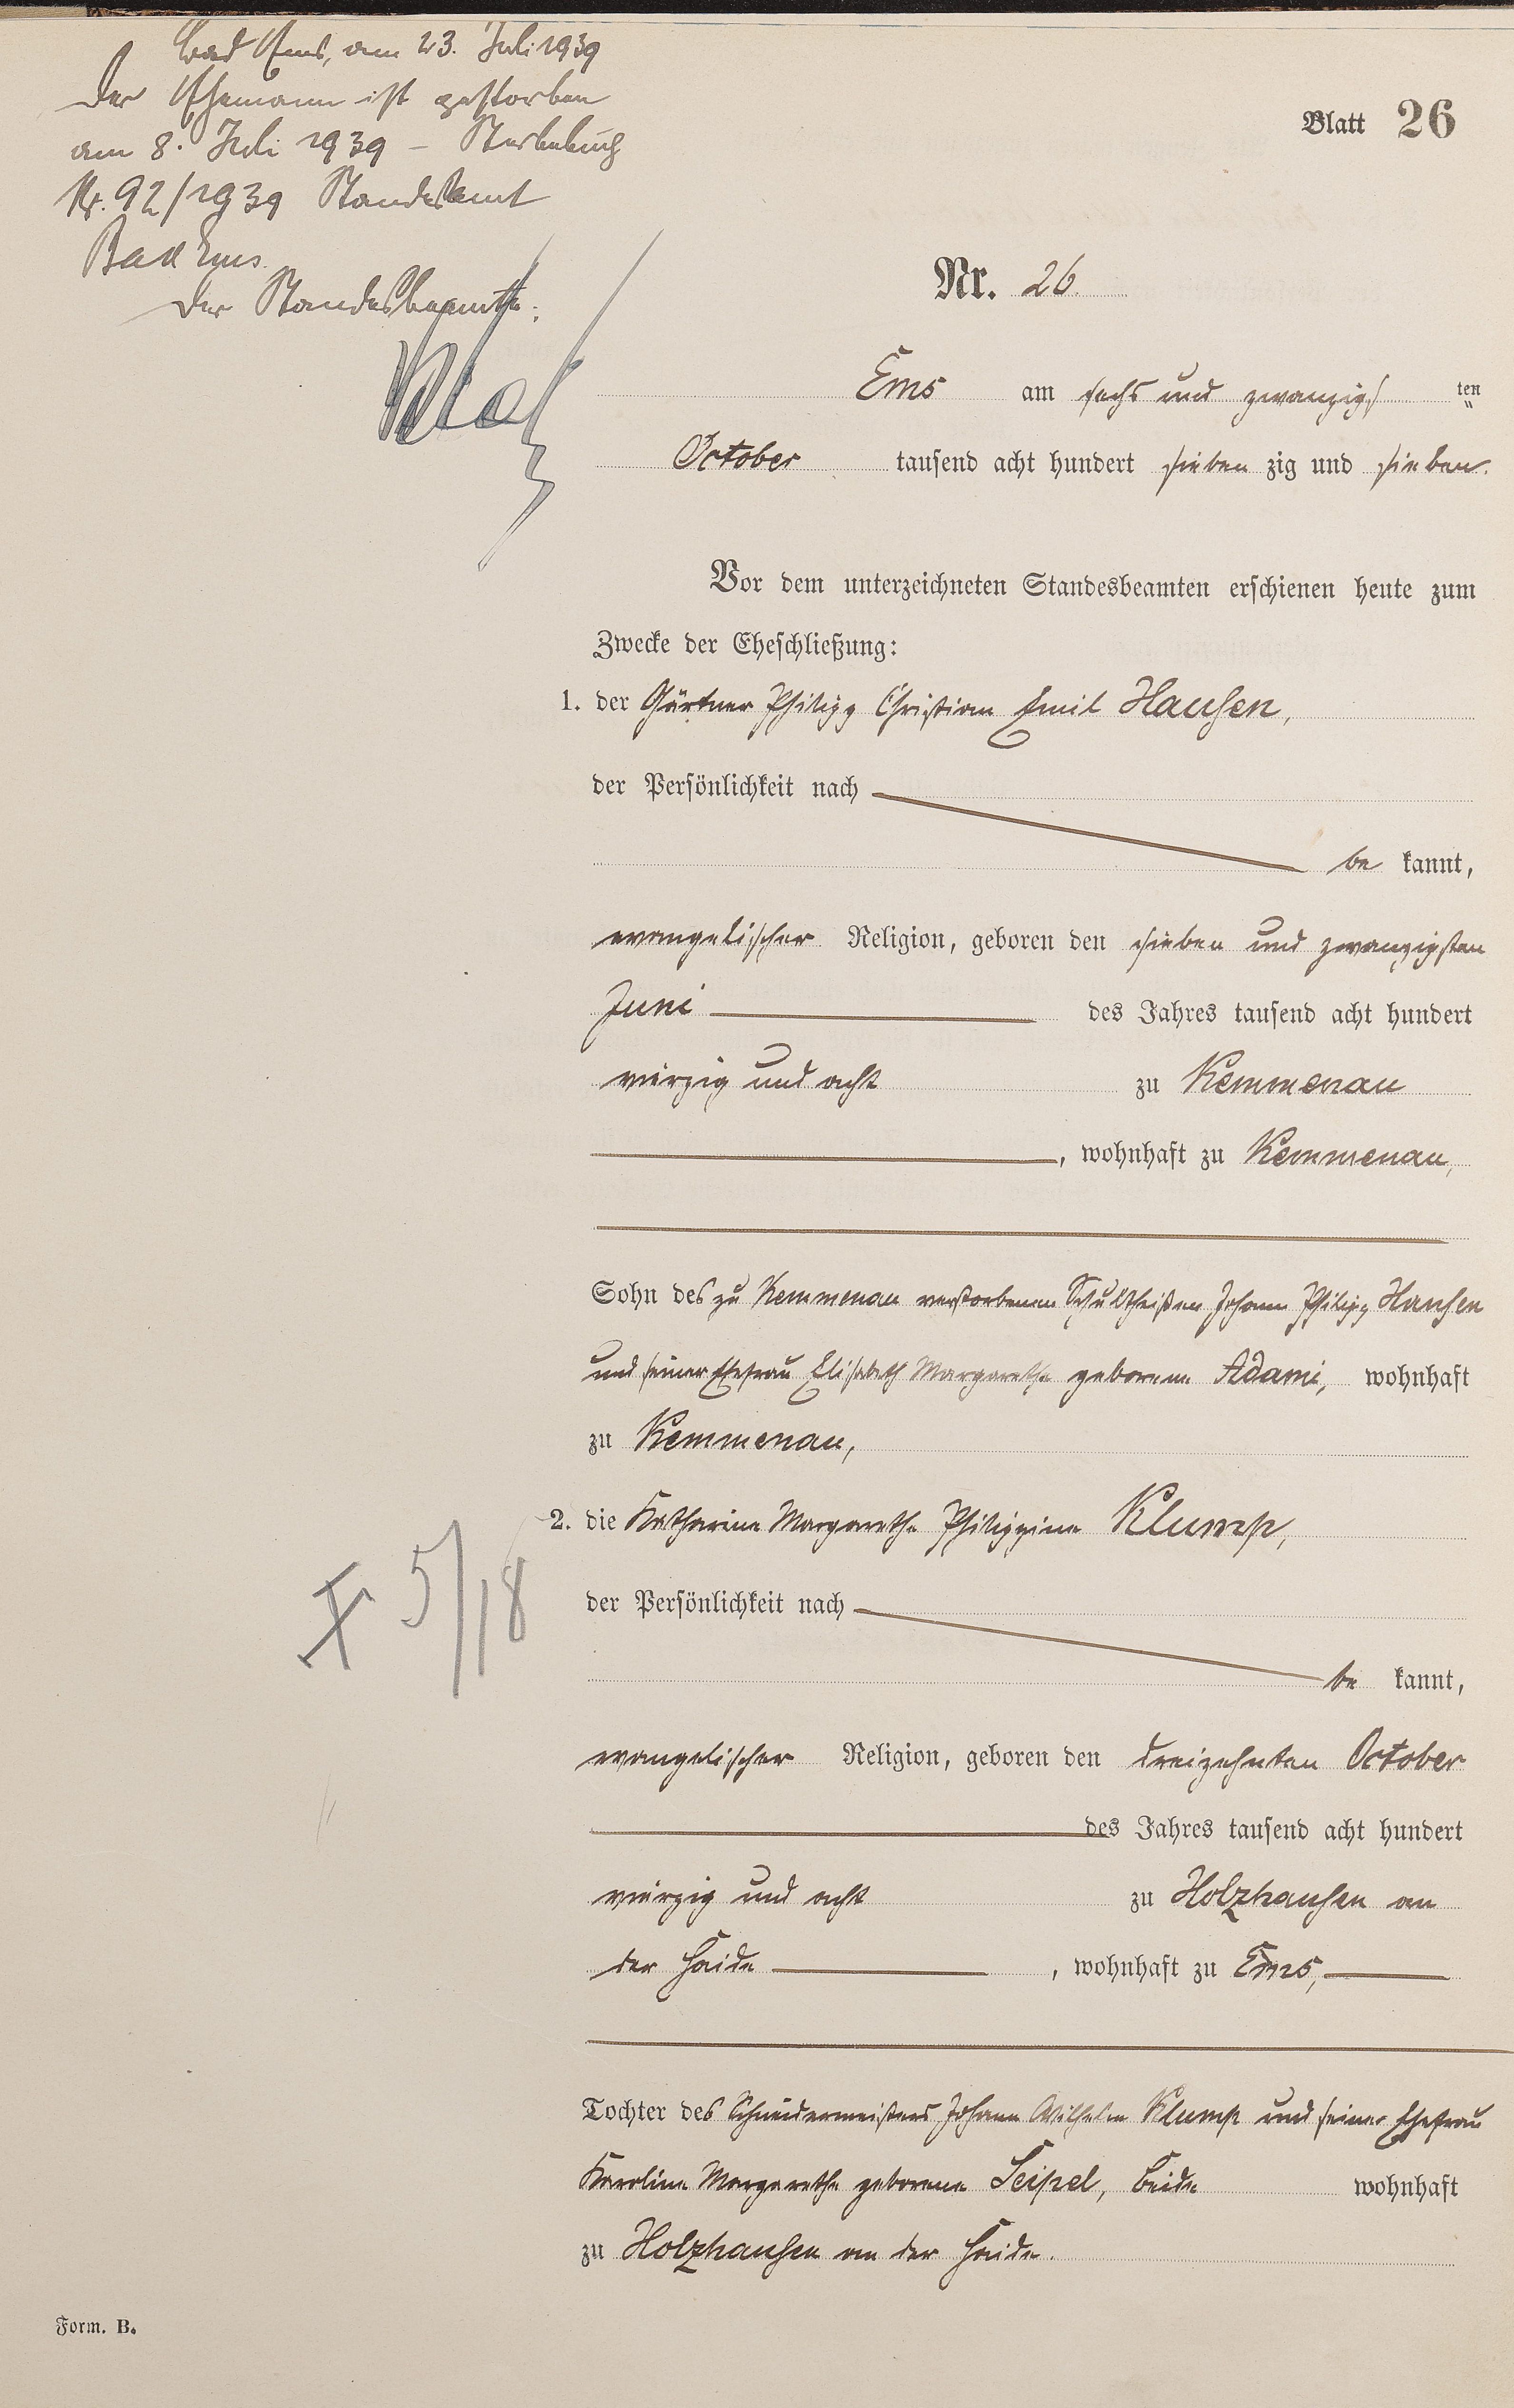 Bad Ems, am 23. Juli 1939
Der Ehemann ist gestorben
am 8. Juli 1939 – Sterbebuch
Nr. 92/1939 Standesamt
Bad Ems.
Der Standesbeamte:
Blatt 26
Nr. 26.
Ems am sechs und zwanzigs ten
October tausend acht hundert sieben zig und sieben.
Vor dem unterzeichneten Standesbeamten erschienen heute zum
Zwecke der Eheschließung:
1. der Gärtner Philipp Christian Emil Hausen,
der Persönlichkeit nach
be kannt,
evangelischer Religion, geboren den sieben und zwanzigsten
Juni des Jahres tausend acht hundert
vierzig und acht zu Kemmenau
, wohnhaft zu Kemmenau,
Sohn des zu Kemmenau verstorbenen Schultheißen Johann Philipp Hausen
und seiner Ehefrau Elisabeth Margarethe geborene Adami, wohnhaft
zu Kemmenau,
2. die Katharine Margarethe Philippine Klump,
der Persönlichkeit nach
X 5/18
be kannt,
evangelischer Religion, geboren den dreizehnten October
des Jahres tausend acht hundert
vierzig und acht zu Holzhausen an
der Haide , wohnhaft zu Ems,
Tochter des Schneidermeisters Johann Wilhelm Klump und seiner Ehefrau
Karoline Margarethe geborene Seipel, beide wohnhaft
zu Holzhausen an der Haide.
Form. B.